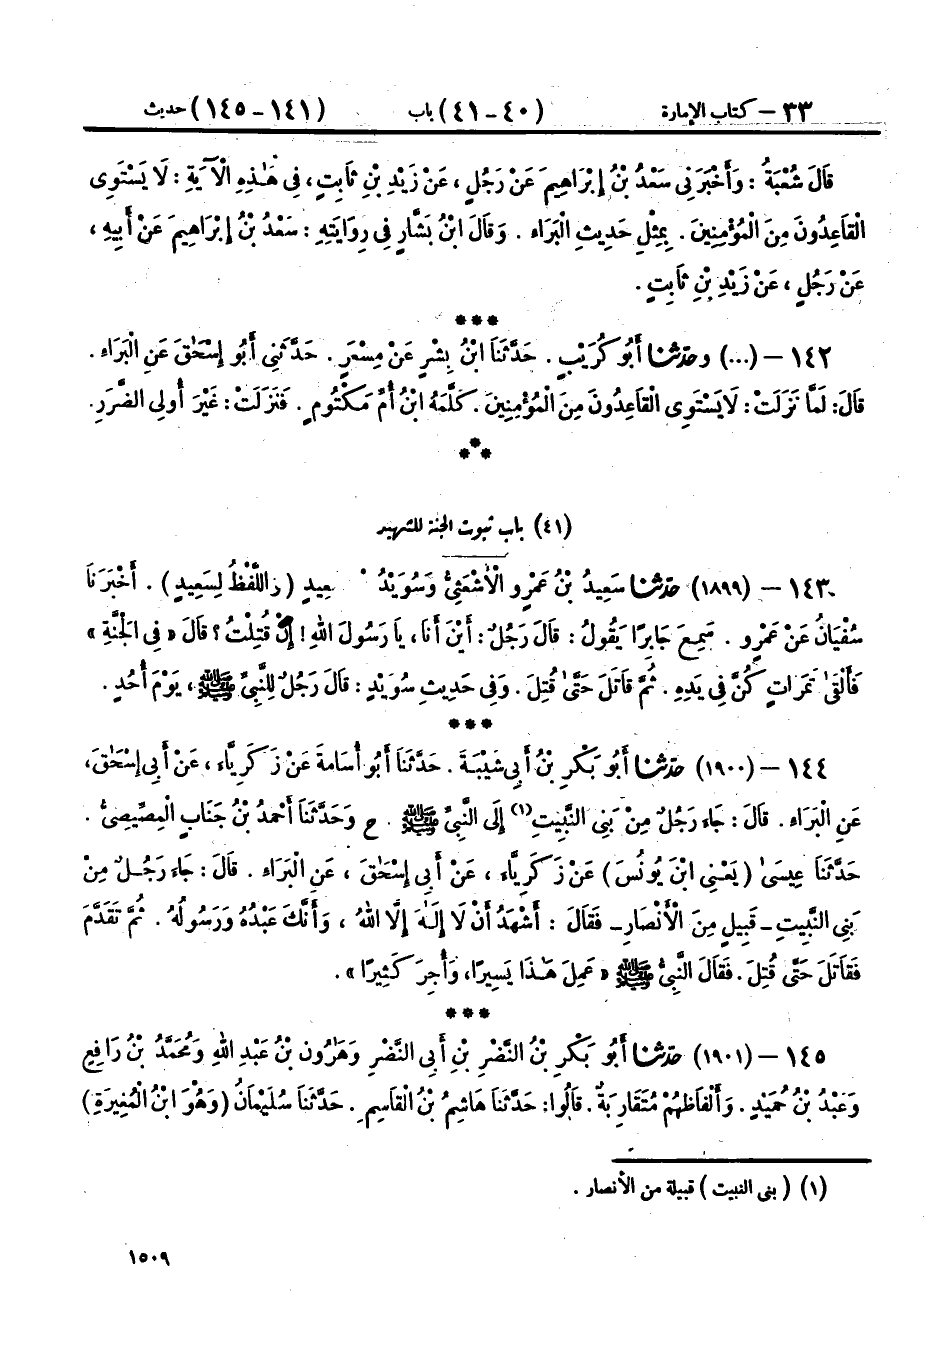 ٣٣ – كتاب الإمارة (٤٠ – ٤١) باب (١٤١ – ١٤٥) حديث
قَالَ شُعْبَةُ : وَأَخْبَرَنِي سَعْدُ بْنُ إِبْرَاهِيمَ عَنْ رَجُلٍ ، عَنْ زَيْدِ بْنِ ثَابِتٍ ، فِي هَٰذِهِ الْآيَةِ : لَا يَسْتَوِي
الْقَاعِدُونَ مِنَ الْمُؤْمِنِينَ . بِمِثْلِ حَدِيثِ الْبَرَاءِ . وَقَالَ ابْنُ بَشَّارٍ فِي رِوَايَتِهِ : سَعْدُ بْنُ إِبْرَاهِيمَ عَنْ أَبِيهِ ،
عَنْ رَجُلٍ ، عَنْ زَيْدِ بْنِ ثَابِتٍ .
***
١٤٢ – (...) وحَدَّثَنَا أَبُو كُرَيْبٍ . حَدَّثَنَا ابْنُ بِشْرٍ عَنْ مِسْعَرٍ . حَدَّثَنِي أَبُو إِسْحَٰقَ عَنِ الْبَرَاءِ .
قَالَ : لَمَّا نَزَلَتْ : لَا يَسْتَوِي الْقَاعِدُونَ مِنَ الْمُؤْمِنِينَ . كَلَّمَهُ ابْنُ أُمِّ مَكْتُومٍ . فَنَزَلَتْ : غَيْرَ أُولِي الضَّرَرِ .
***
(٤١) باب ثبوت الجنة للشهيد
١٤٣ – (١٨٩٩) حَدَّثَنَا سَعِيدُ بْنُ عَمْرٍو الْأَشْعَثِيُّ وَسُوَيْدُ عِيدٍ (وَاللَّفْظُ لِسَعِيدٍ) . أَخْبَرَنَا
سُفْيَانُ عَنْ عَمْرٍو . سَمِعَ جَابِرًا يَقُولُ : قَالَ رَجُلٌ : أَيْنَ أَنَا ، يَا رَسُولَ اللهِ ! إِنْ قُتِلْتُ ؟ قَالَ « فِي الْجَنَّةِ »
فَأَلْقَىٰ تَمَرَاتٍ كُنَّ فِي يَدِهِ . ثُمَّ قَاتَلَ حَتَّىٰ قُتِلَ . وَفِي حَدِيثِ سُوَيْدٍ : قَالَ رَجُلٌ لِلنَّبِيِّ ﷺ ، يَوْمَ أُحُدٍ .
***
١٤٤ – (١٩٠٠) حَدَّثَنَا أَبُو بَكْرِ بْنُ أَبِي شَيْبَةَ . حَدَّثَنَا أَبُو أُسَامَةَ عَنْ زَكَرِيَّاءَ ، عَنْ أَبِي إِسْحَٰقَ ،
عَنِ الْبَرَاءِ . قَالَ : جَاءَ رَجُلٌ مِنْ بَنِي النَّبِيتِ(١) إِلَى النَّبِيِّ ﷺ . ح وَحَدَّثَنَا أَحْمَدُ بْنُ جَنَابٍ الْمِصِّيصِيُّ .
حَدَّثَنَا عِيسَىٰ ( يَعْنِي ابْنَ يُونُسَ ) عَنْ زَكَرِيَّاءَ ، عَنْ أَبِي إِسْحَٰقَ ، عَنِ الْبَرَاءِ . قَالَ : جَاءَ رَجُلٌ مِنْ
بَنِي النَّبِيتِ – قَبِيلٍ مِنَ الْأَنْصَارِ – فَقَالَ : أَشْهَدُ أَنْ لَا إِلَٰهَ إِلَّا اللهُ ، وَأَنَّكَ عَبْدُهُ وَرَسُولُهُ . ثُمَّ تَقَدَّمَ
فَقَاتَلَ حَتَّى قُتِلَ . فَقَالَ النَّبِيُّ ﷺ « عَمِلَ هَٰذَا يَسِيرًا ، وَأُجِرَ كَثِيرًا » .
***
١٤٥ – (١٩٠١) حَدَّثَنَا أَبُو بَكْرِ بْنُ النَّضْرِ بْنِ أَبِي النَّضْرِ وَهَارُونُ بْنُ عَبْدِ اللهِ وَمُحَمَّدُ بْنُ رَافِعٍ
وَعَبْدُ بْنُ حُمَيْدٍ . وَأَلْفَاظُهُمْ مُتَقَارِبَةٌ . قَالُوا : حَدَّثَنَا هَاشِمُ بْنُ الْقَاسِمِ . حَدَّثَنَا سُلَيْمَانُ (وَهُوَ ابْنُ الْمُغِيرَةِ)
(١) ( بني النبيت ) قبيلة من الأنصار .
١٥٠٩